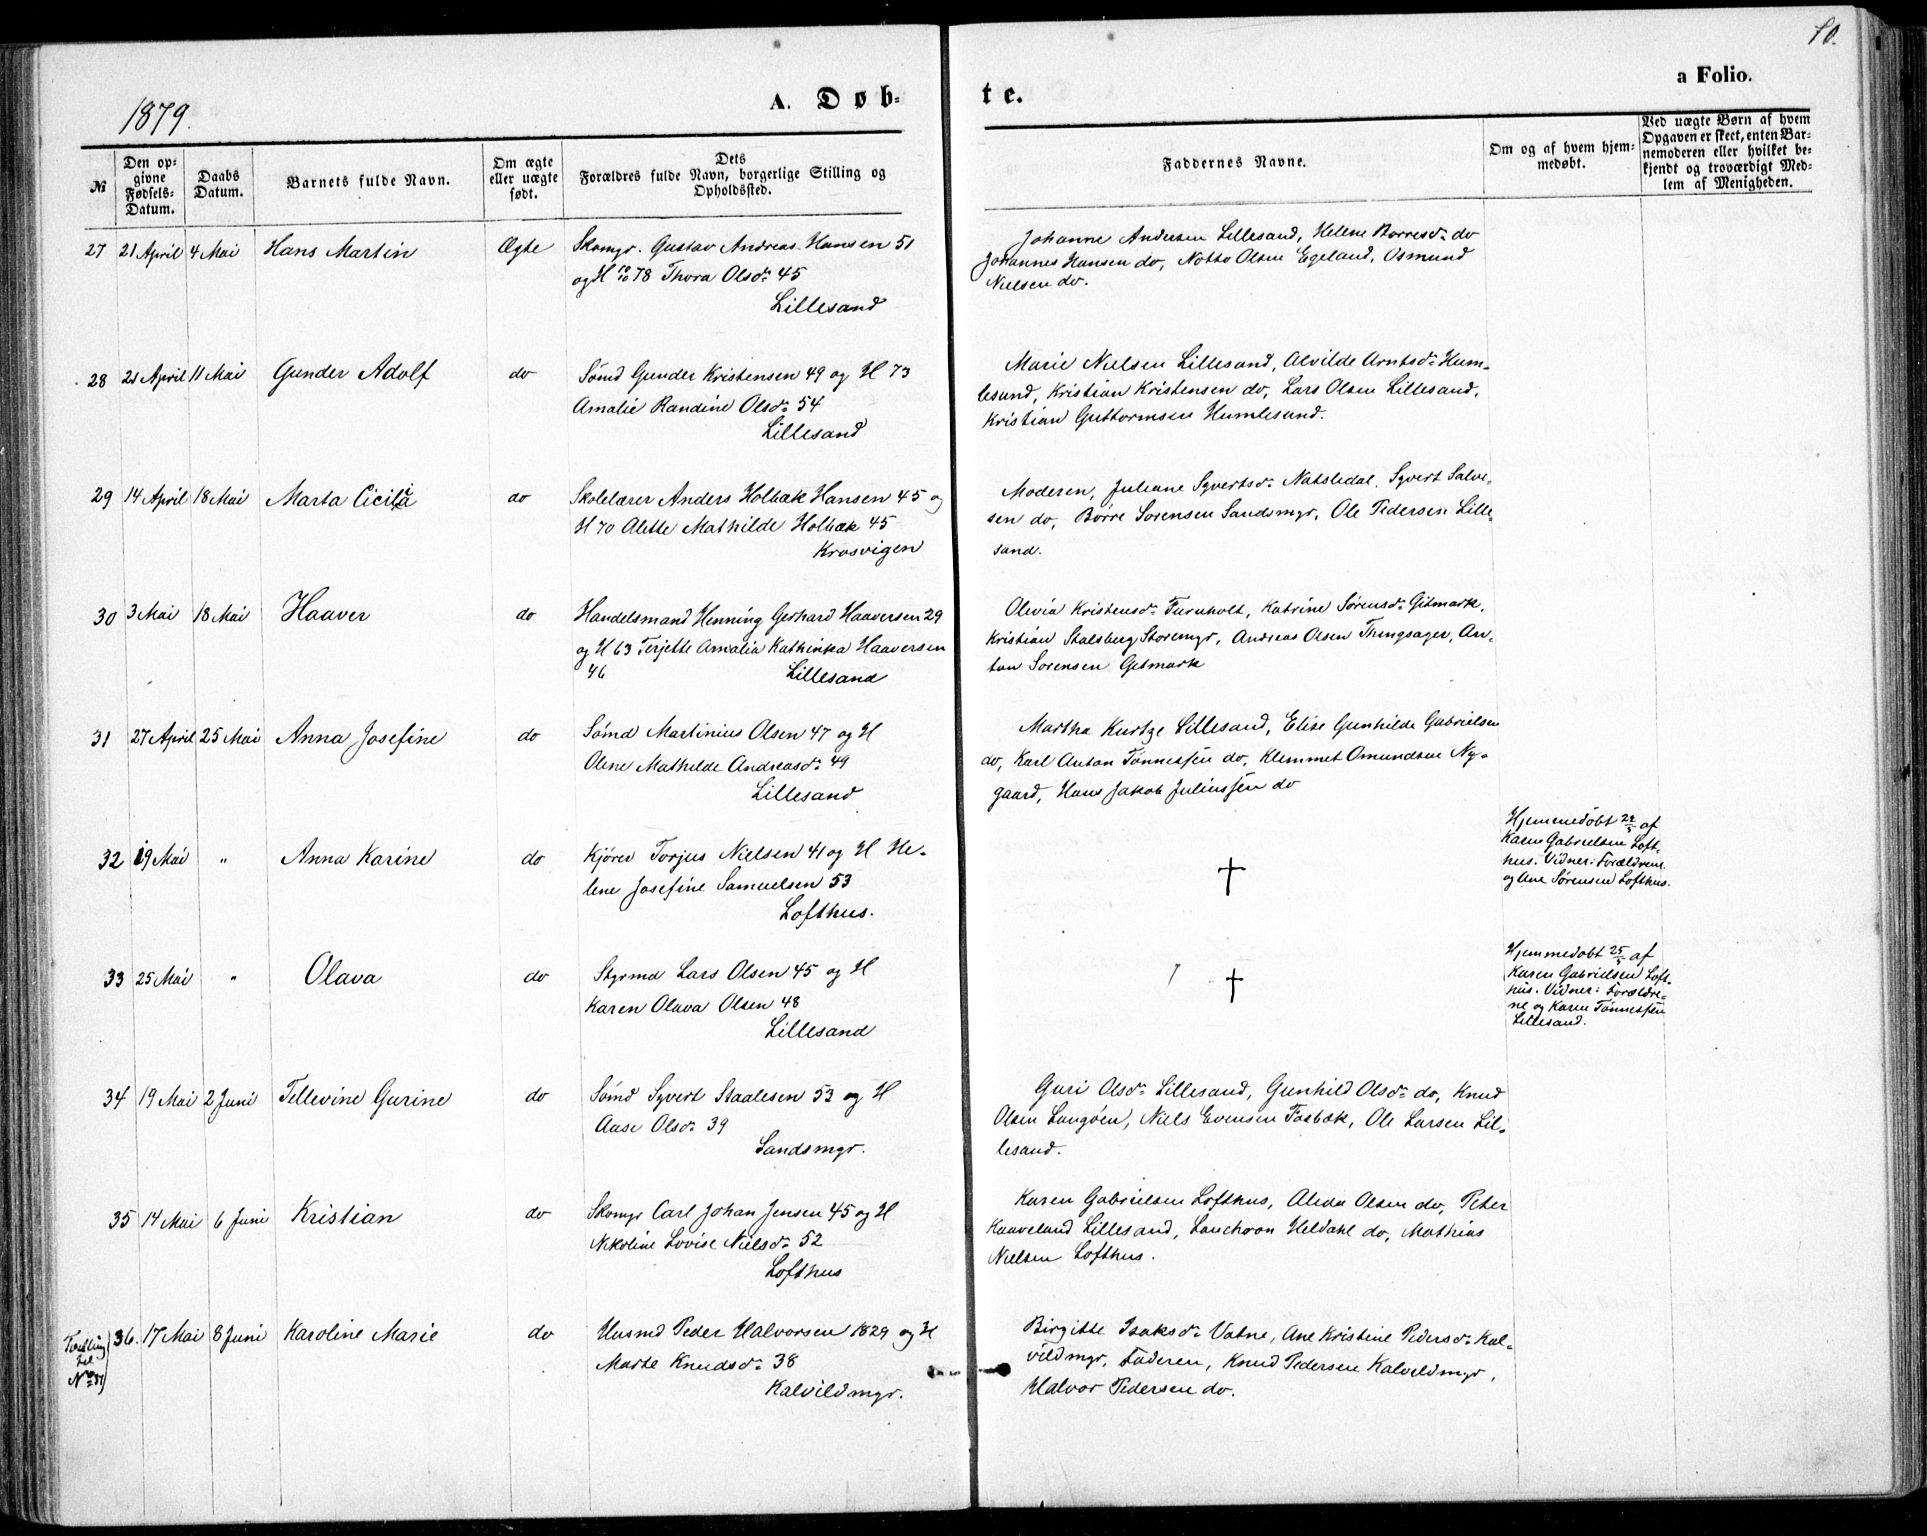 10.
a Folio.
1879.
A. Døb-
te.
№
Den op-
givne
Fødsels-
Datum.
Daabs
Datum.
Barnets fulde Navn.
Om ægte
eller uægte
født.
Dets
Forældres fulde Navn, borgerlige Stilling og
Opholdssted.
Faddernes Navne.
Om og af hvem hjem-
medøbt.
Ved uægte Børn af hvem
Opgaven er skeet, enten Bar-
nemoderen eller hvilket be-
kjendt og troværdigt Med-
lem af Menigheden.
27 21 April 4 Mai Hans Martin Ægte Skomgr. Gustav Andreas Hansen 51
og H 78 Thora Olsdr 45
Lillesand
Johanne Andersen Lillesand, Helene Børresdr do
Johannes Hansen do, Notto Olsen Egeland, Osmund
Nielsen do.
28 21 April 11 Mai Gunder Adolf do Sømd Gunder Kristensen 49 og H 73
Amalie Randine Olsdr 54
Lillesand
Marie Nielsen Lillesand, Alvilde Arntsdr Hum-
lesund, Kristian Kristensen do, Lars Olsen Lillesand,
Kristian Guttormsen Humlesund.
29 14 April 18 Mai Marta Cicilia do Skolelærer Anders Holbæk Hansen 45 og
H 70 Alette Mathilde Holbæk 45
Krosvigen
Moderen, Juliane Syvertsdr Natsledal, Syvert Salve-
sen do, Børre Sørensen Sandsmgr, Ole Pedersen Lille-
sand.
30 3 Mai 18 Mai Haaver do Handelsmand Henning Gerhard Haaversen 29
og H 63 Terjette Amalia Kathinka Haaversen
46 Lillesand
Olevia Kristensdr Furuholt, Katrine Sørensdr Gitmark,
Kristian Stalsberg Storemgr, Andreas Olsen Thingsager, An-
ton Sørensen Gitmark
31 27 April 25 Mai Anna Josefine do Sømd Martinius Olsen 47 og H
Olene Mathilde Andreasdr 49
Lillesand
Martha Kurtze Lillesand, Elise Gunhilde Gabrielsen
do, Karl Anton Tønnessen do, Klemmet Omundsen Ny-
gaard, Hans Jakob Juliussen do
32 19 Mai " Anna Karine do Kjører Torjus Nielsen 41 og H He-
lene Josefine Samuelsen 53
Lofthus.
†
Hjemmedøbt af
Karen Gabrielsen Loft-
hus. Vidner: Forældrene
og Ane Sørensen Lofthus.
33 25 Mai " Olava do Styrmd Lars Olsen 45 og H
Karen Olava Olsen 48
Lillesand
†
Hjemmedøbt 25/5 af
Karen Gabrielsen Loft-
hus. Vidner: Forældre-
ne og Karen Tønnessen
Lillesand.
34 19 Mai 2 Juni Tellevine Gurine do Sømd Syvert Staalesen 53 og H
Aase Olsdr 39
Sandsmgr.
Guri Olsdr Lillesand, Gunhild Olsdr do, Knud
Olsen Langøen, Niels Evensen Fosbæk, Ole Larsen Lil-
lesand.
35 14 Mai 6 Juni Kristian do Skomgr Carl Johan Jensen 45 og H
Nikoline Lovise Nielsdr 52
Lofthus
Karen Gabrielsen Lofthus, Alida Olsen do, Peter
Kaaveland Lillesand, Heldahl do, Mathias
Nielsen Lofthus.
Tvilling
til
No 37
36. 17 Mai 8 Juni Karoline Marie do Husmd Peder Halvorsen 1829 og H
Marte Knudsdr 38
Kalvildmgr.
Birgitte Isaksdr Vatne, Ane Kristine Pedersdr Kal-
vildmgr, Faderen, Knud Pedersen Kalvildmgr,
Halvor Pedersen do.